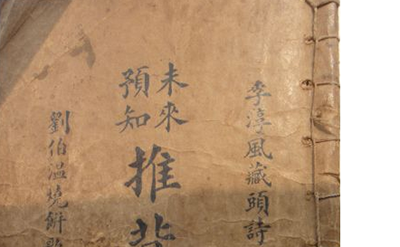 李淳風藏頭詩
未來
預知
推背
劉伯温燒餅歌